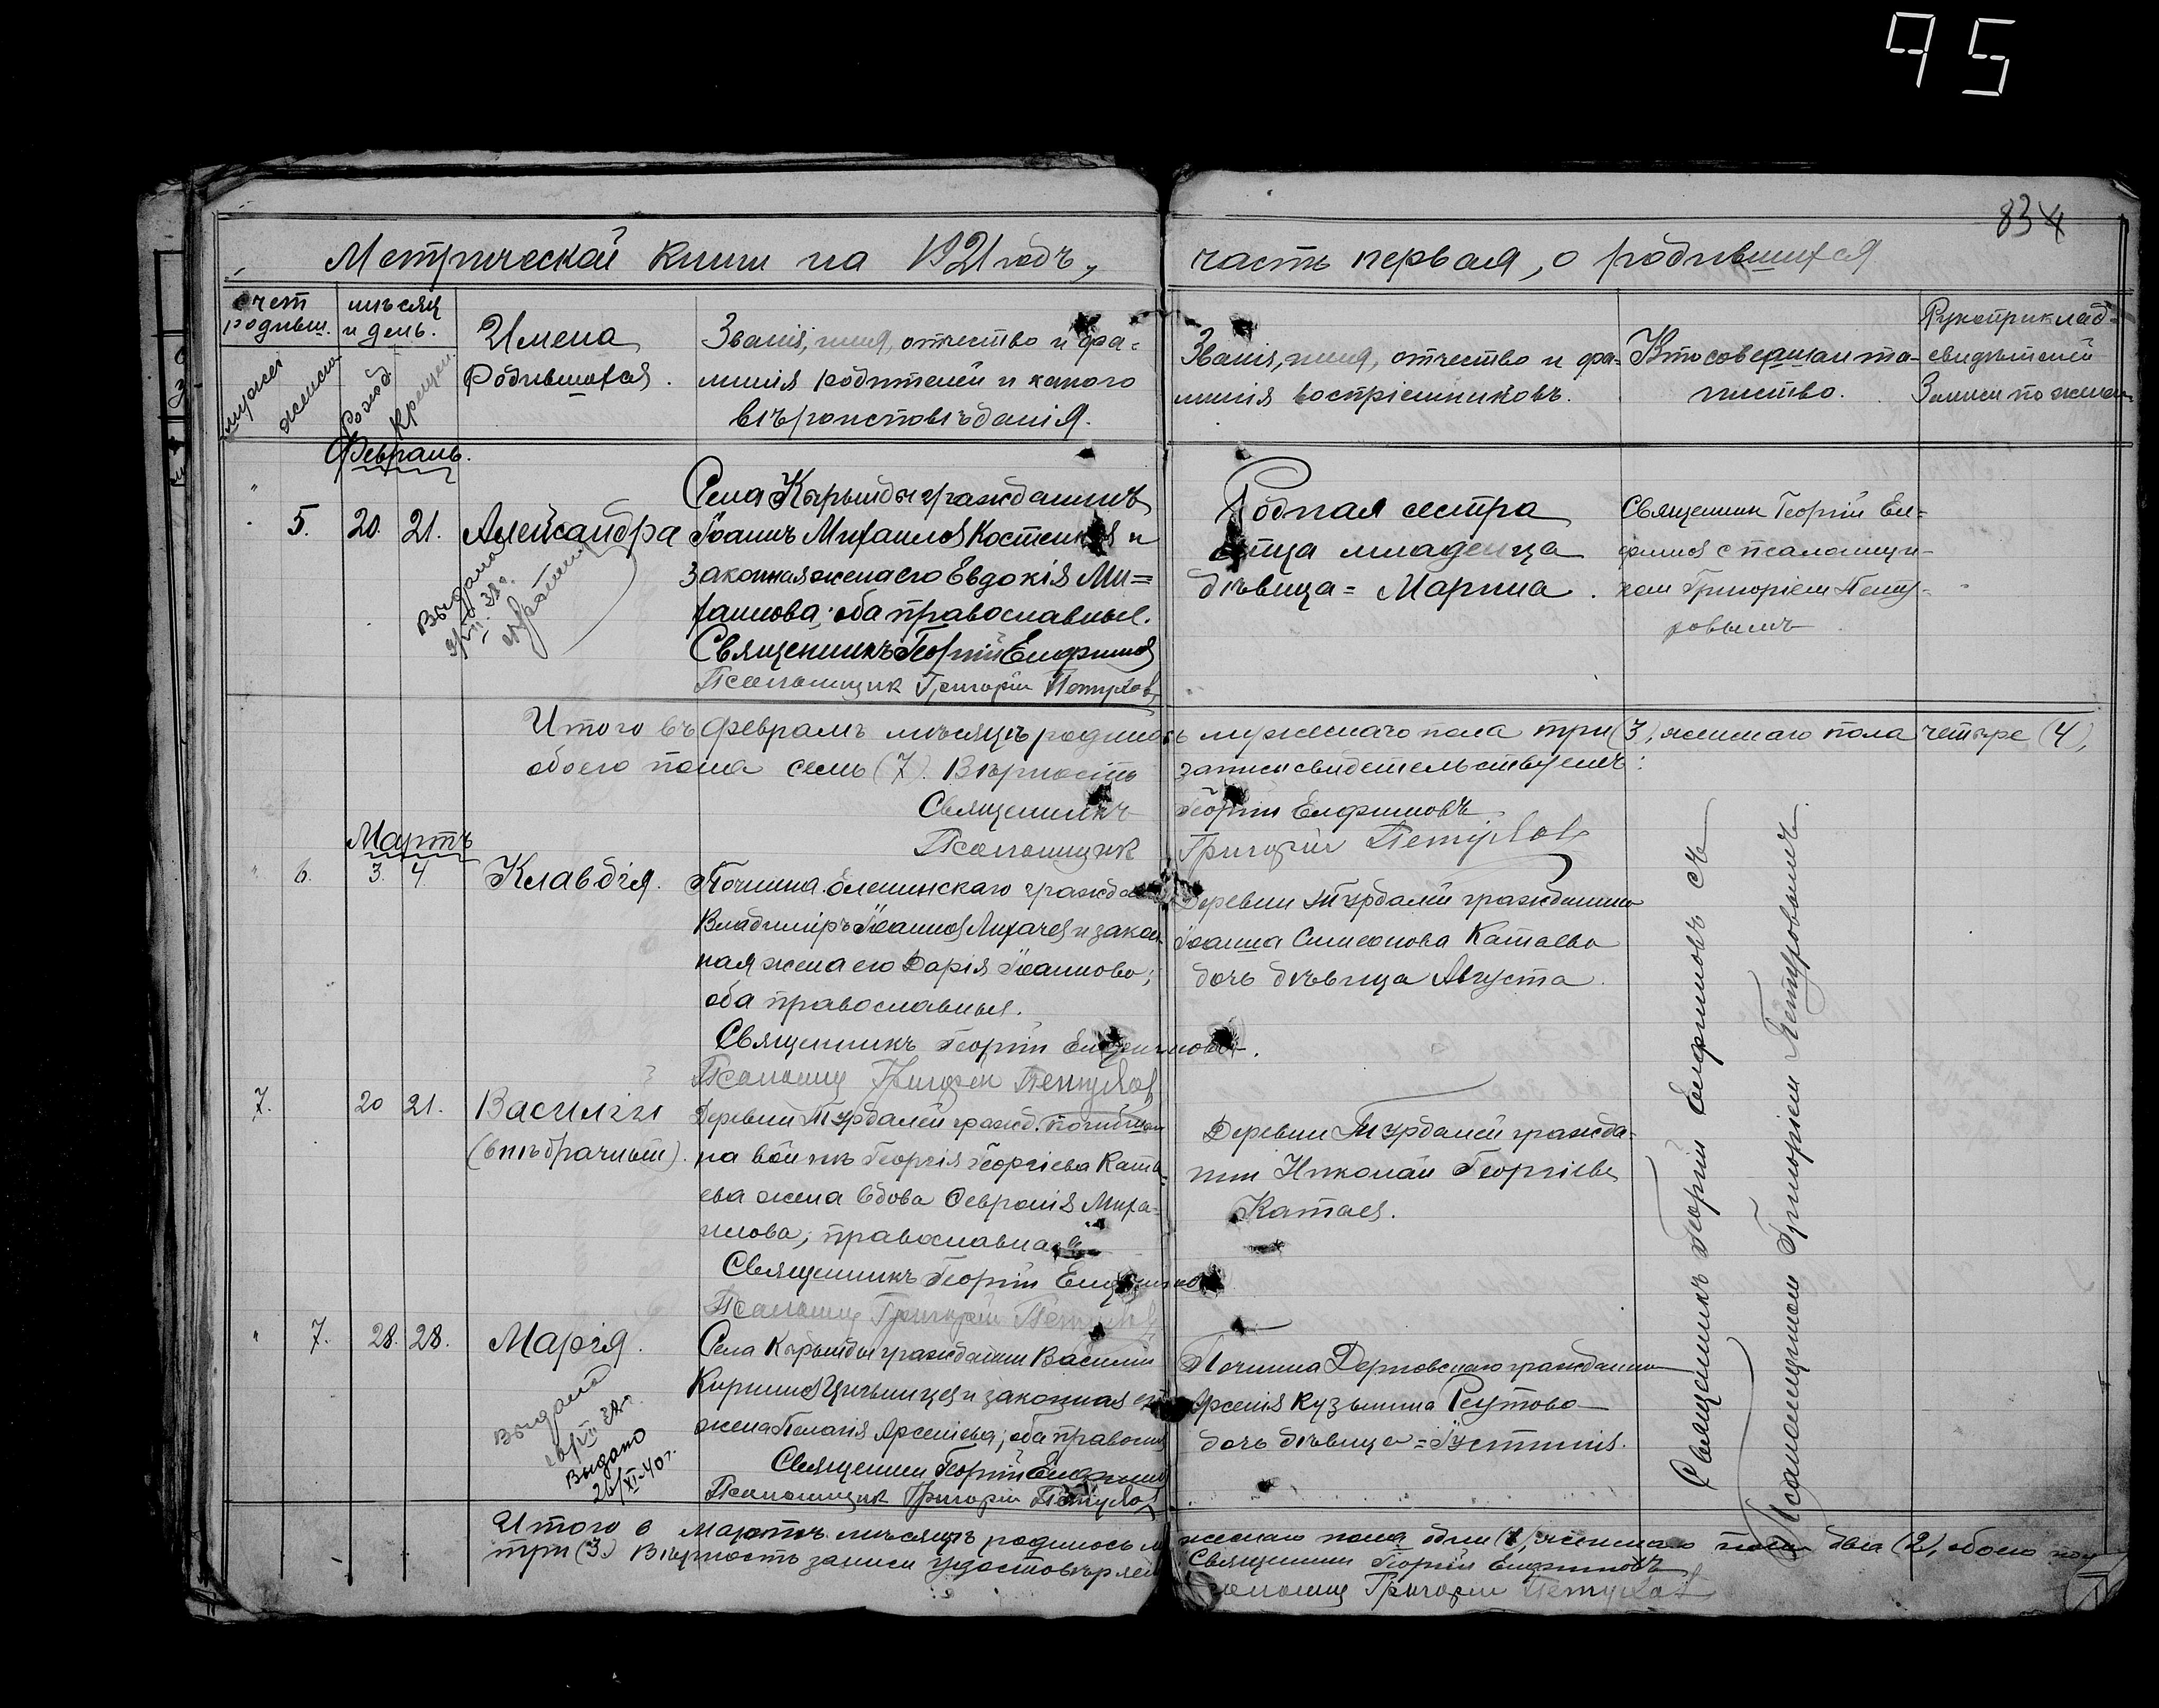 95
834
Метрической книги на 1921 годъ, часть первая, о родившихся
счет родивш.
мужеск
женска
мѣсяц и день.
Рожд.
Крещен.
Имена
Родившихся.
Званіе, имя, отчество и фа=
милія родителей и какого
вѣроисповѣданія.
Званіе, имя, отчество и фа-
милія воспріемниковъ.
Кто совершал та-
инство.
Рукоприклад-
свидѣтелей
Записи по желан
Февраль.
5. 20. 21. Александра
Выдано
Села Кырынды гражданинъ
Іоаннъ Михаилов Костенков и
законная жена его Евдокія Ми=
хаилова; оба православные.
Священникъ Георгій Елфимов
Псаломщик Григорій Петухов
Родная сестра
отца младенца
дѣвица = Марина.
Священник Георгій Ел=
фимов с псаломщи-
ком Григоріем Пету-
ховымъ
Итого въ феврале мѣсяцѣ родилось мужескаго пола три (3), женскаго пола четыре (4),
обоего пола семь (7). Вѣрность записи свидетельствуемъ:
Священникъ Георгій Елфимовъ
Псаломщик Григорій Петухов
Мартъ
6. 3. 4. Клавдія.
Починка Оленинскаго гражда
Владиміръ Іоаннов Лихачев и закон
ная жена его Дарія Іоаннова;
оба православные.
Священникъ Георгій Елфимовъ.
Псаломщ Григорій Петухов
Деревни Турдалей гражданина
Іоанна Симеонова Катаева
дочь дѣвица Августа.
7. 20 21. Василій
(внѣбрачный).
Деревни Турдалей гражд. погибшаго
на войнѣ Георгія Георгіева Ката-
ева жена вдова Февронія Миха-
илова; православная
Священникъ Георгій Елфимов
Псаломщ Григорій Петухов
Деревни Турдалей гражда-
нин Николай Георгіев
Катаев.
7. 28. 28. Марія.
Выдано
Выдано
26/XI-40 г.
Села Кырынды гражданин Василий
Кирилов и законная его
жена Пелагія Арсеніева; оба правосл
Священник Георгій Елфимов
Псаломщик Григорій Петухов
Починка гражданина
Арсенія Кузьмина Реутова
дочь дѣвица = Іустинія.
Священникъ Георгій Елфимовъ съ
Псаломщиком Григоріем Петуховымъ.
Итого в мартѣ мѣсяцѣ родилось мужескаго пола один (1), женскаго пола два (2), обоего пол
три (3.) Вѣрность записи удостовѣряем
Священник Георгій Елфимовъ
Псаломщ Григорій Петухов